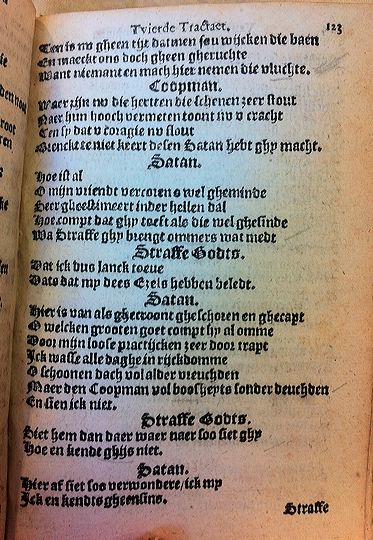 Tvierde Tractaet. 123
Ten is nv gheen tijt datmen sou wijcken die baen
En maeckt ons doch gheen gheruchte
Want niemant en mach hier nemen die vluchte.
Coopman.
Waer zijn nv die hertten die schenen zeer stout
Naer hun hooch vermeten toont nv v cracht
Ten sy dat v coragie nv flout
Gronckt ee niet keert desen Satan hebt ghy macht.
Satan.
Hoe ist al
O mijn vriendt vercoren s wel gheminde
Seer gheestimeert inder hellen dal
Hoe compt dat ghy toeft als die wel ghesinde
Wa Straffe ghy brengt ommers wat medt
Straffe Godts.
Dat ick dus lanck toeue
Dats dat my dees Ezels hebben beledt.
Satan.
Hier is van als ghecroont gheschoren en ghecapt
O welcken grooten goet compt hy al omme
Door mijn loose practijcken zeer door trapt
Ick wasse alle daghe in rijckdomme
O schoonen dach vol alder vreuchden
Maer den Coopman vol boosheyts sonder deuchden
En sien ick niet.
Straffe Godts.
Siet hem dan daer waer naer soo siet ghy
Hoe en kende ghijs niet.
Satan.
Hier af siet soo verwondere / ick my
Ick en kendts gheensins.
Straffe